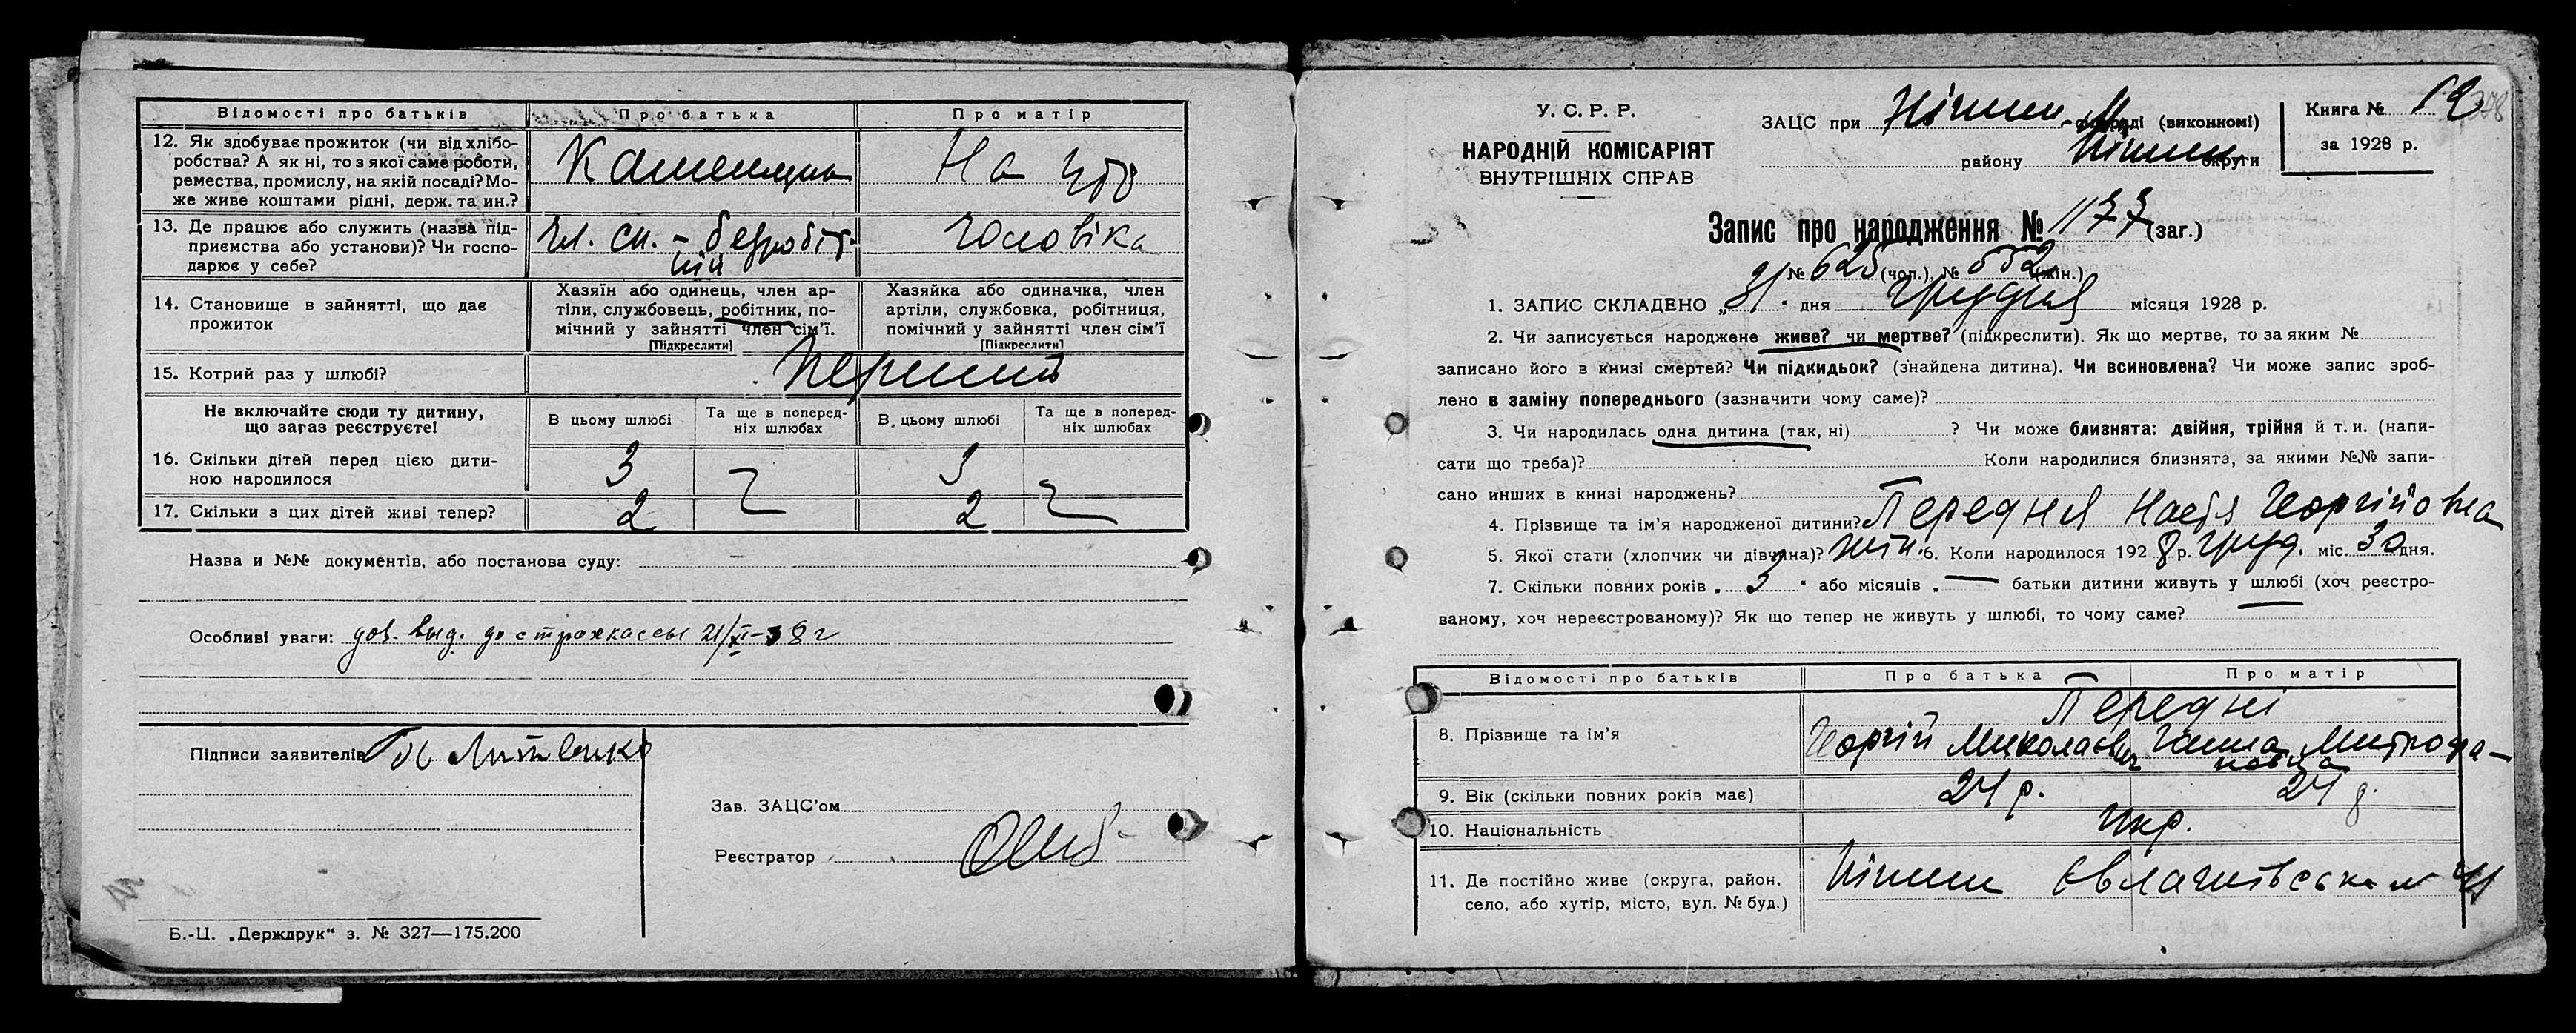 Відомості про батьків
Про батька
Про матір
12. Як здобуває прожиток (чи від хлібо-
робства? А як ні, то з якої саме роботи,
ремества, промислу, на якій посаді? Мо-
же живе коштами рідні, держ. та ин.?
Каменщик
На утр
13. Де працює або служить (назва під-
приємства або установи)? Чи госпо-
дарює у себе?
чл. сп. – безробіт-
ній
чоловіка
14. Становище в зайнятті, що дає
прожиток
Хазяїн або одинець, член ар-
тіли, службовець, робітник, по-
мічний у зайнятті член сім'ї.
[Підкреслити]
Хазяйка або одиначка, член
артіли, службовка, робітниця,
помічний у зайнятті член сім'ї
[Підкреслити]
15. Котрий раз у шлюбі?
Перший
Не включайте сюди ту дитину,
що загаз реєструєте!
В цьому шлюбі
Та ще в поперед-
ніх шлюбах
В цьому шлюбі
Та ще в поперед-
ніх шлюбах
16. Скільки дітей перед цією дити-
ною народилося
3
3
17. Скільки з цих дітей живі тепер?
2
2
Назва и №№ документів, або постанова суду: —
Особливі уваги: дов. выд. до страхкассы 21/XI-38 г
Підписи заявителів
Литвенко
Зав. ЗАЦС'ом
Реєстратор
Б.-Ц. „Держдрук“ з. № 327—175.200
У. С. Р. Р.
НАРОДНІЙ КОМІСАРІЯТ
ВНУТРІШНІХ СПРАВ
ЗАЦС при Ніжин. М. раді (виконкомі)
району Ніжин округи
Книга № 12
за 1928 р.
Запис про народження № 1177 (заг.)
№ 625 (чол.), № 552 (жін.)
1. ЗАПИС СКЛАДЕНО „31“ дня Грудня місяця 1928 р.
2. Чи записується народжене живе? чи мертве? (підкреслити). Як що мертве, то за яким №
записано його в книзі смертей? Чи підкидьок? (знайдена дитина). Чи всиновлена? Чи може запис зроб-
лено в заміну попереднього (зазначити чому саме)?
3. Чи народилась одна дитина (так, ні) ? Чи може близнята: двійня, трійня й т. и. (напи-
сати що треба)? Коли народилися близнята, за якими №№ запи-
сано инших в книзі народжень?
4. Прізвище та ім'я народженої дитини? Передня Настя Георгійовна
5. Якої стати (хлопчик чи дівчина)? жін. 6. Коли народилося 1928 р. груд. міс. 30 дня.
7. Скільки повних років „3“ або місяців „— батьки дитини живуть у шлюбі (хоч реєстро-
ваному, хоч нереєстрованому)? Як що тепер не живуть у шлюбі, то чому саме?
Відомості про батьків
Про батька
Про матір
8. Прізвище та ім'я
Передні
Георгій Миколаевич
Ганна Митрофа-
новна
9. Вік (скільки повних років має)
24 р.
24 р.
10. Національність
Укр.
11. Де постійно живе (округа, район,
село, або хутір, місто, вул. № буд.)
Ніжин Євлашівська